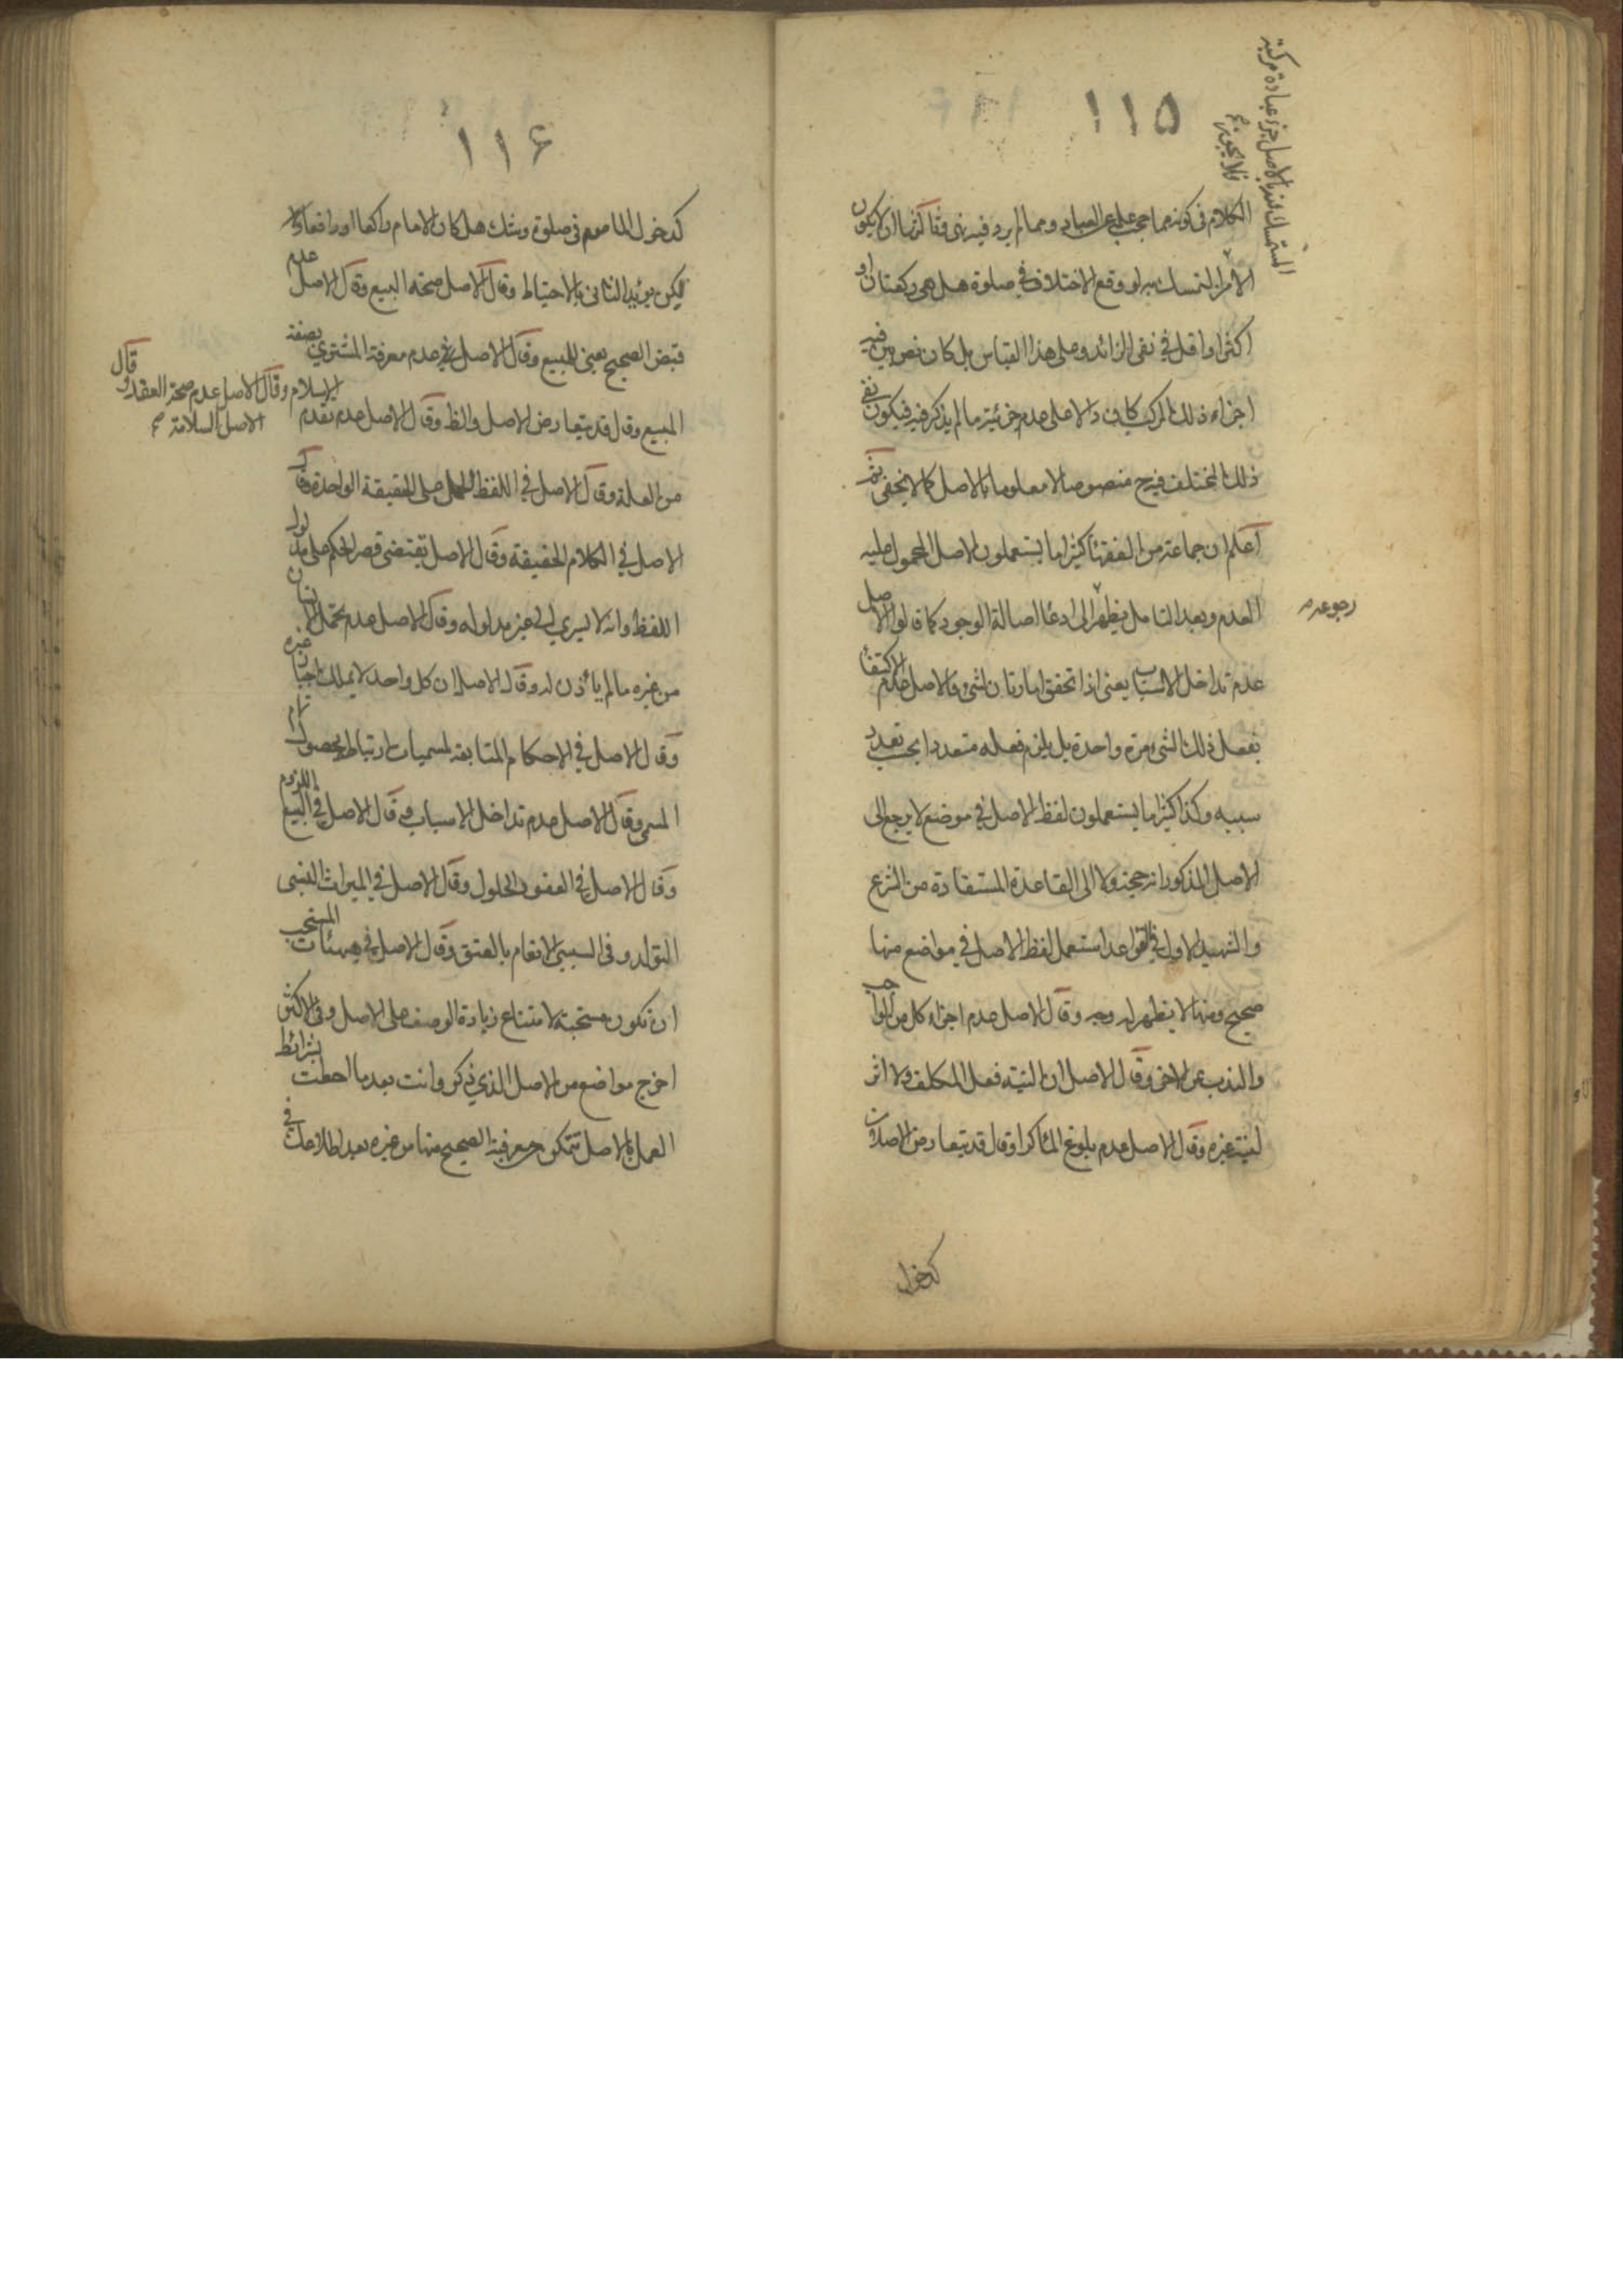 ١١٥
المتمسك عند بالاصل جزء عبادة مركبة
فلا يجوز
الكلام فى كونه مما حجب علمه عن العباد ومما لم يرد فيه نهى الا ان لا يكون
الامر التمسك به لو وقع الاختلاف فى صلوة هل هى ركعتان او
اكثر او اقل فى نفى الزائد وعلى هذا القياس بل كان نص بين فيه
اجزاء ذلك المركب كان دالا على عدم جزئية ما لم يذكر فيه فيكون نفى
ذلك المختلف فيه ح منصوصا لا معلوما بالاصل كما لا يخفى ثم
اعلم ان جماعة من الفقهاء كثيرا ما يستعملون الاصل المحمول عليه
العدم وبعد التامل يظهر الى ادعاء اصالة الوجود كما قالوا الاصل
رجوعه
عدم تداخل الاسباب يعنى اذا تحقق امارتان لشىء فالاصل عدم الاكتفاء
بفعل ذلك الشىء مرة واحدة بل يلزم فعله متعددا بحسب تعدد
سببه وكذا كثيرا ما يستعملون لفظ الاصل فى موضع لا يرجع الى
الاصل المذكور انه حجة ولا الى القاعدة المستفادة من الشرع
والشهيد الاول فى القواعد استعمل لفظ الاصل فى مواضع منها
صحيح ومنها لا يظهر له وجه وقال الاصل عدم اجزاء كل من الواجب
والندب عن الاخر وقال الاصل ان النية فعل المكلف ولا اثر
لنية غيره وقال الاصل عدم بلوغ الماء كرا وقال قد يتعارض الاصلان
كدخول
١١٦
كدخول الماموم فى صلوة وشك هل كان الامام راكعا او رافعا
لكن يؤيد الثانى بالاحتياط وقال الاصل صحة البيع وقال الاصل عدم
قبض الصحيح يعنى المبيع وقال الاصل عدم معرفة المشترى بصفة
المبيع وقال قد يتعارض الاصل والظ وقال الاصل عدم تقدم
الاسلام وقال الاصل عدم صحة العقد وقال
الاصل السلامة صح
من العلة وقال الاصل فى اللفظ الحمل على الحقيقة الواحدة وقال
الاصل فى الكلام الحقيقة وقال الاصل يقتضى قصر الحكم على مدلول
اللفظ وانه لا يسرى الى غير مدلوله وقال الاصل عدم تحمل الانسان
من غيره ما لم يأذن له وقال الاصل ان كل واحد لا يملك اجبار غيره
وقال الاصل فى الاحكام المتابعة لمسميات ارتباط بحصول تمام
المسمى وقال الاصل عدم تداخل الاسباب وقال الاصل فى البيع اللزوم
وقال الاصل فى العقود الحلول وقال الاصل فى الميراث النسبى
التولد وفى السببى الانعام بالعتق وقال الاصل فى هيئات المستحب
ان تكون مستحبة لامتناع زيادة الوصف على الاصل وفى الاكثر
اخرج مواضع من الاصل الذى ذكر وانت بعد ما احطت بشرائط
العمل بالاصل تتمكن من معرفة الصحيح منها من غيره بعد اطلاعك فى